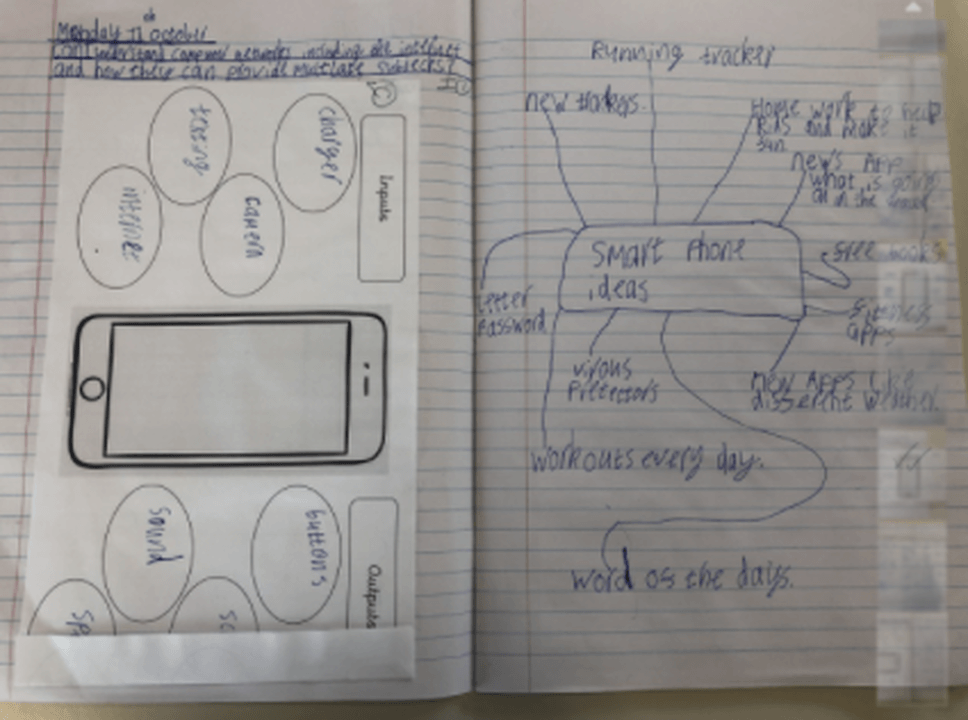 Monday 11th October
I can understand computer networks including the internet
and how these can provide multiple subjects?
Inputs
charger
texting
camera
internet
Outputs
buttons
sound
sc
sp
Running tracker
new trackers.
Home work to help
kids and make it
fun
new's App
what is going
on in the
free books
fitness
apps
Smart Phone
ideas
Letter
Password
virous
Pretectors
new Apps like
different weather.
workouts every day.
word of the days.